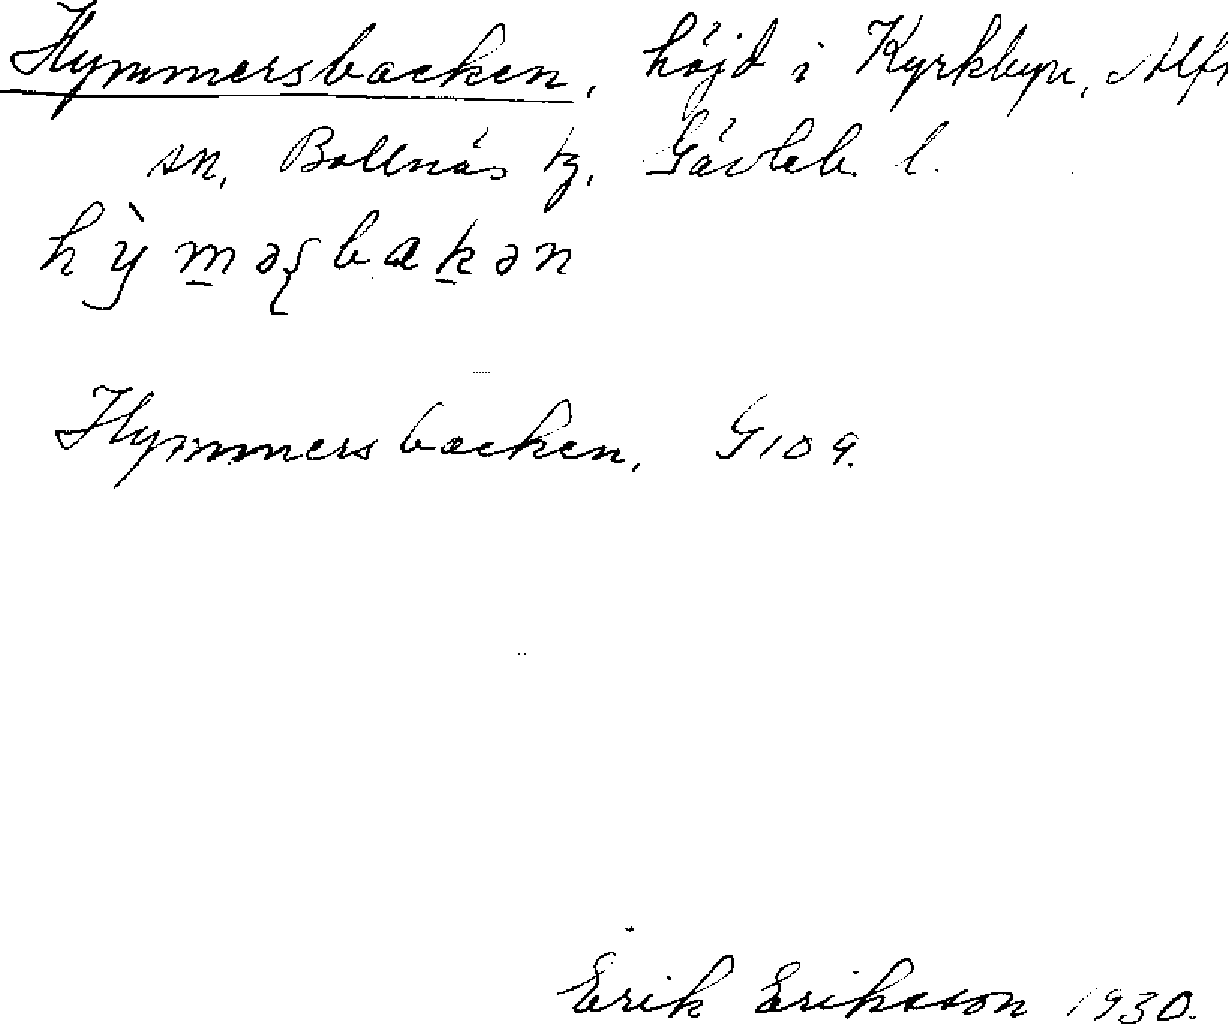 Hymmersbacken, höjd i Kyrkbyn, Alf
sn, Bollnäs tg, Gävleb. l.
hỳm̠əʂbak̠ən
Hymmersbacken, G 109.
Erik Eriksson 1930.